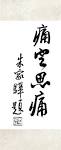 痛定思痛
朱家驊題